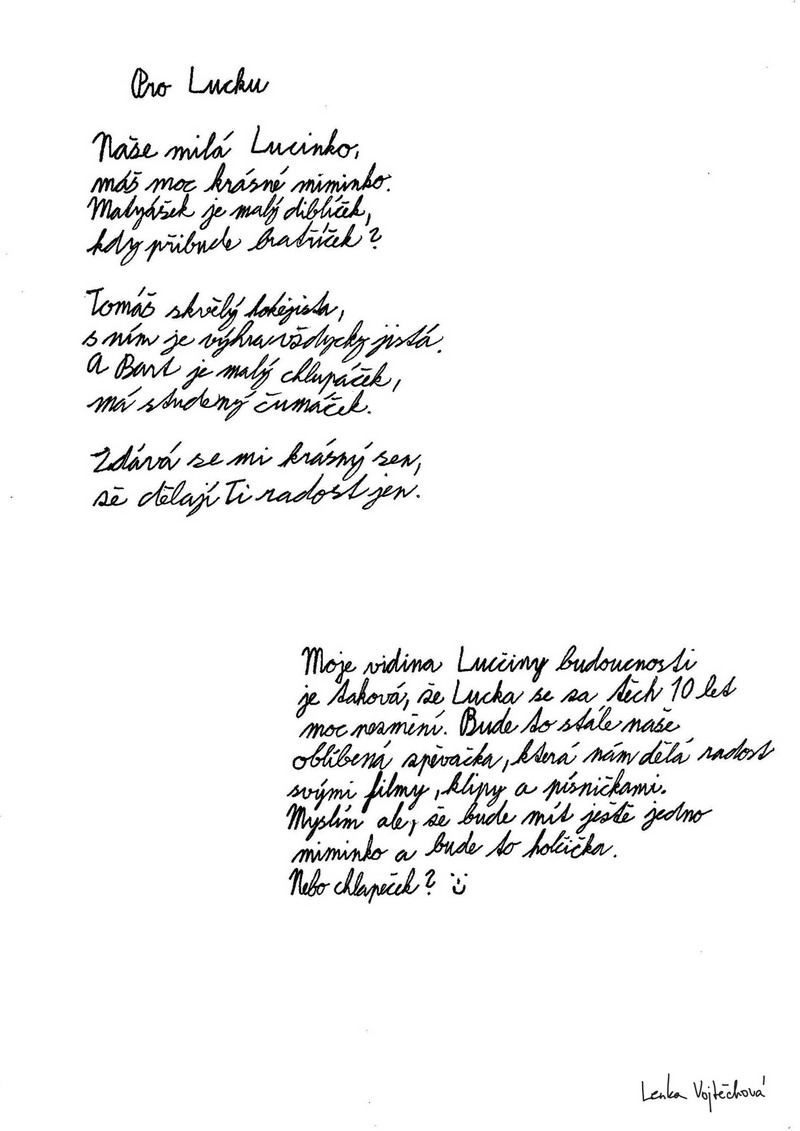 Pro Lucku
Naše milá Lucinko,
máš moc krásné miminko.
Matyášek je malý diblíček,
kdy přibude bratříček?
Tomáš skvělý hokejista,
s ním je výhra vždycky jistá.
A Bart je malý chlupáček,
má studený čumáček.
Zdává se mi krásný sen,
že dělají Ti radost jen.
Moje vidina Lucčiny budoucnosti
je taková, že Lucka se za těch 10 let
moc nezmění. Bude to stále naše
oblíbená zpěvačka, která nám dělá radost
svými filmy, klipy a písničkami.
Myslím ale, že bude mít ještě jedno
miminko a bude to holčička.
Nebo chlapeček? :)
Lenka Vojtěchová